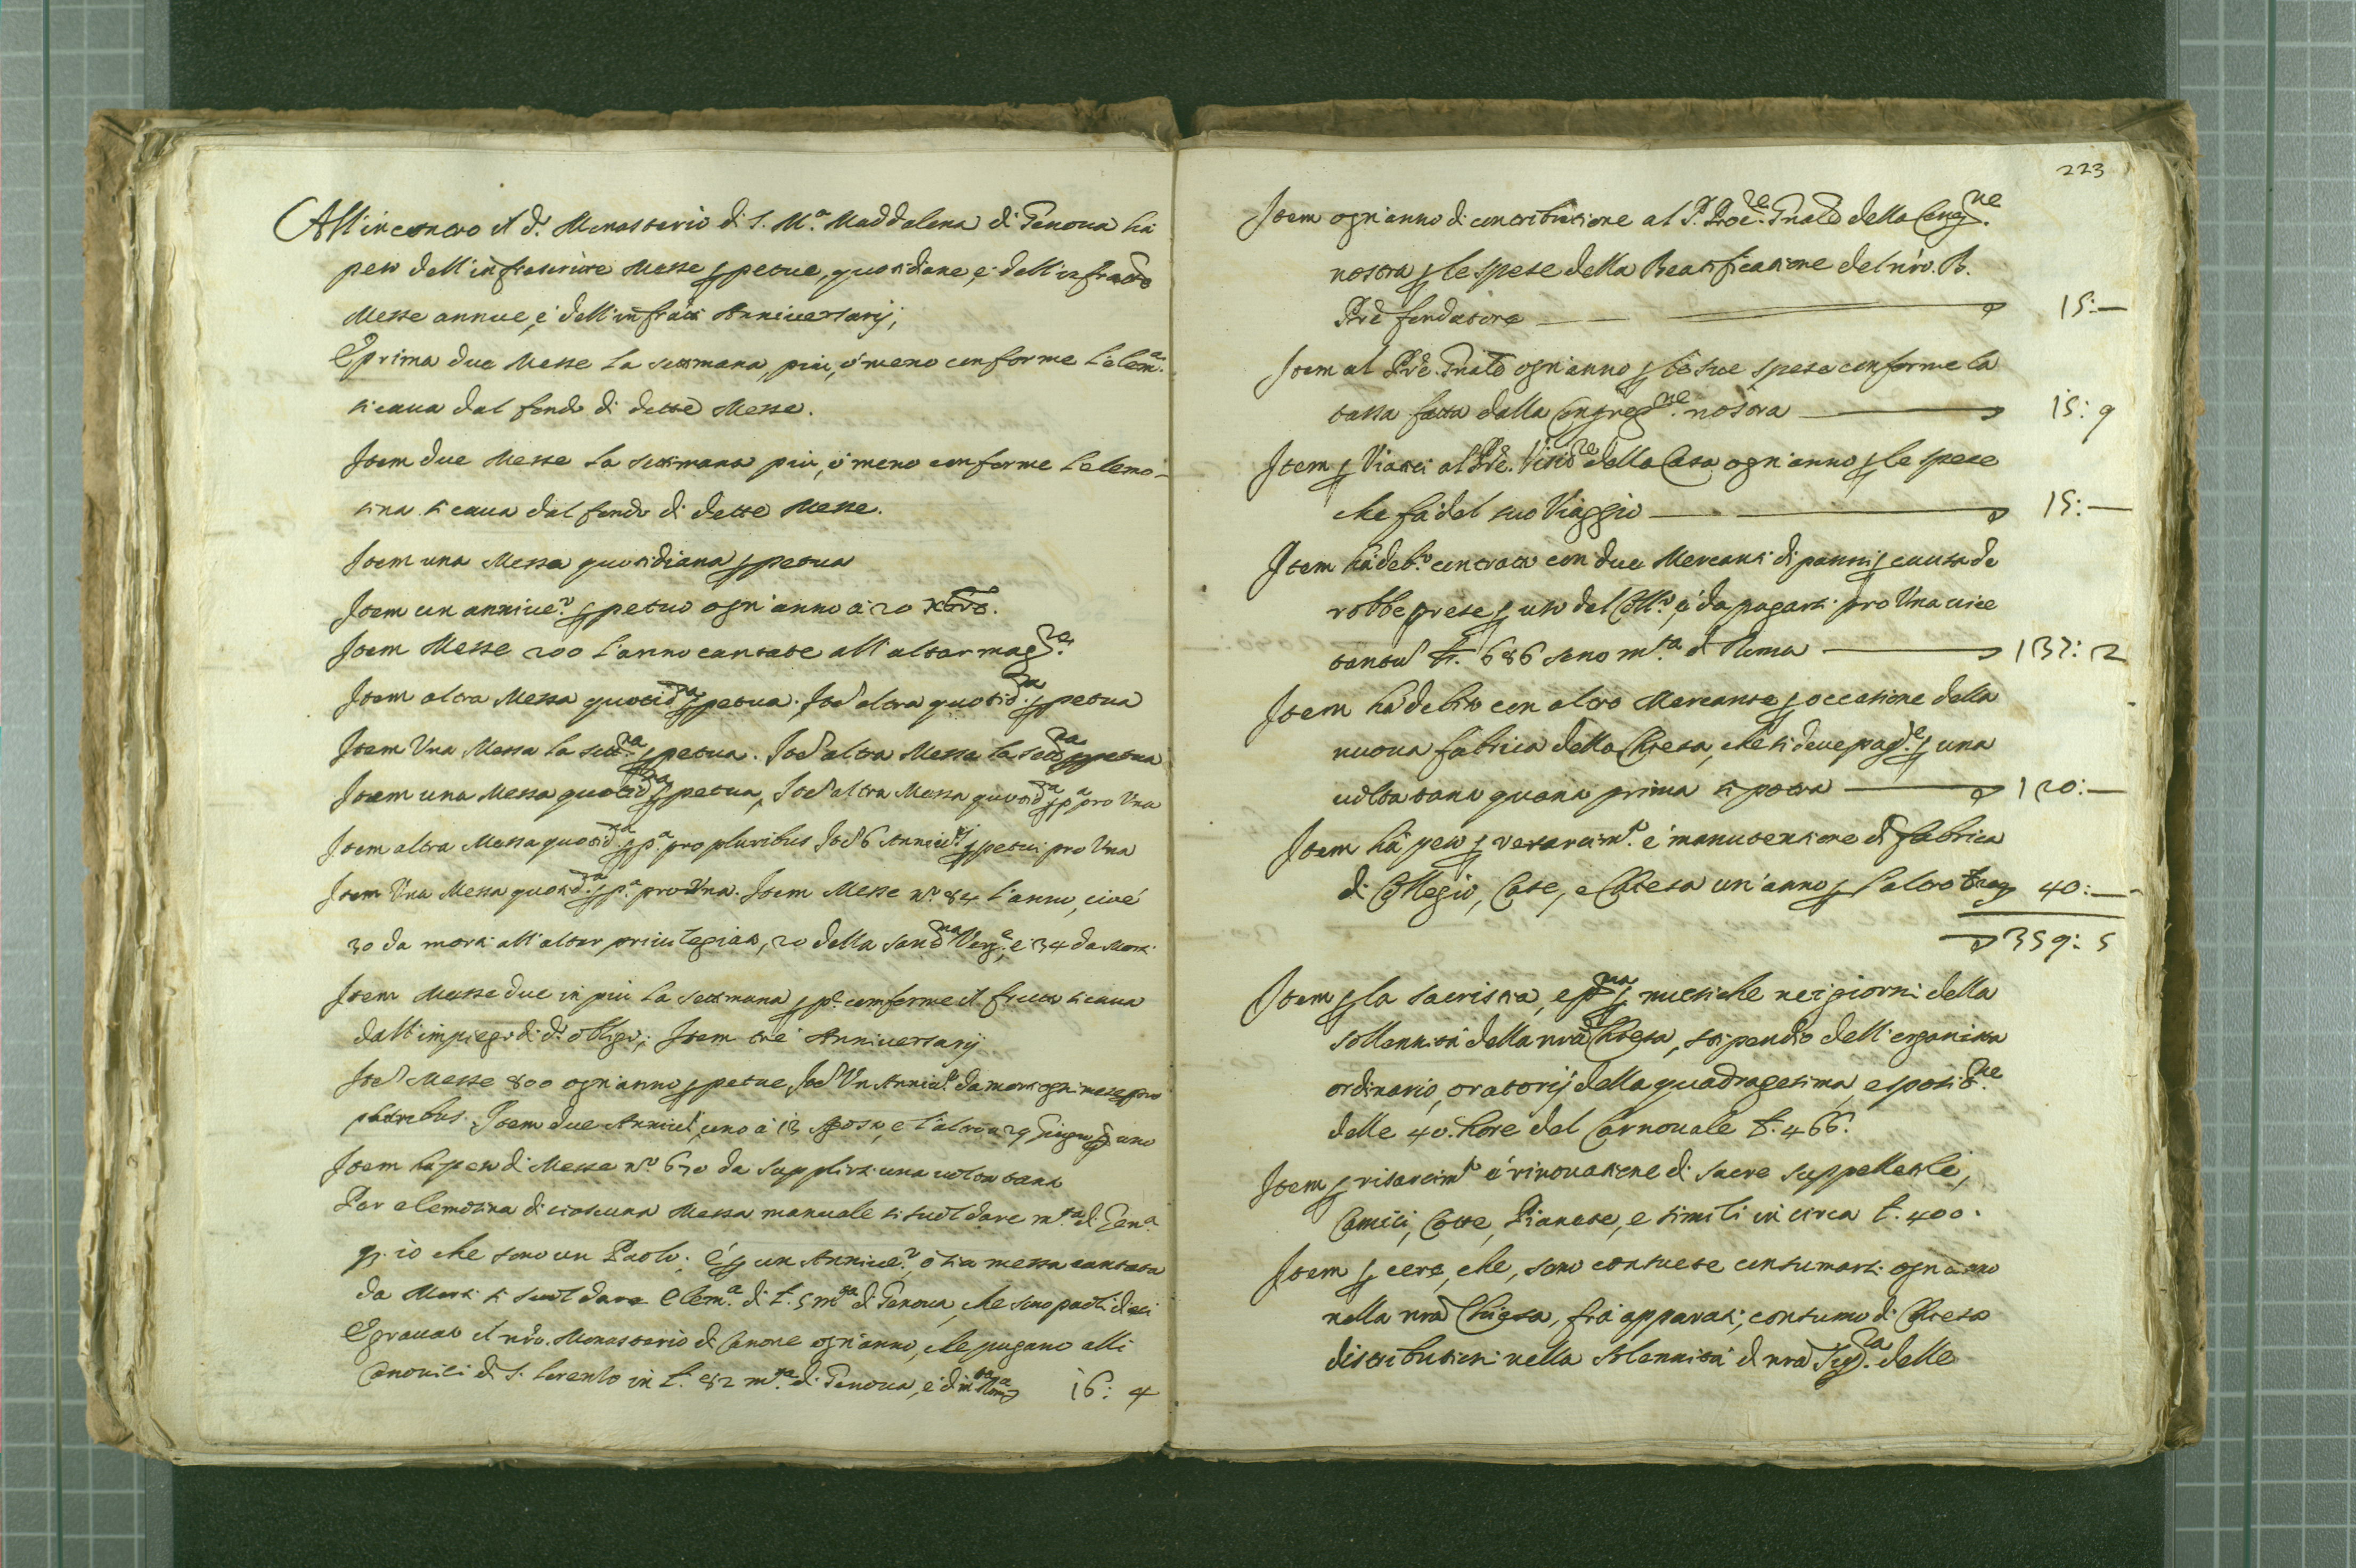 All'incontro il d.º Monasterio di S. M.ª Maddalena di Genova há
peso dell'infrascritte Messe ꝑpetue, quotidiane, e dell'infratte
Messe annue, e dell'infratti Anniversarij;
E prima due Messe la settimana, piu, ó meno conforme l'elem.ª
si caua dal fondo di dette Messe.
Item due Messe la settimana piu, ó meno conforme l'elemo-
sina si caua dal fondo di dette Messe.
Item una Messa quotidiana ꝑpetua
Item un anniue.º ꝑpetuo ogn'anno á 20 Xbre.
Item Messe 200 l'anno cantate all'altar mag.re
Item altra Messa quotid.na ꝑpetua. Itê altra quotid.na ꝑpetua
Item Una Messa la sett.na ꝑpetua. Itê altra Messa la sett.na ꝑpetua
Item una Messa quotid.na ꝑpetua, Itê altra Messa quotid.na ꝑp.ª pro Una
Item altra Messa quotid.na ꝑp.ª pro pluribus Itê 6 Anniu.rij ꝑpetui pro Una
Item Una Messa quotid.na ꝑp.ª pro Una. Item Messe n.º 84 l'anno, cioé
30 da morti all'altar priuilegiato, 20 della Sant.ma Verg.e, e 34 da Morti
Item Messe due in piu la settimana ꝑp.e conforme il frutto si caua
dall'impiego di d.º obligo; Item tré Anniversarij
Itê Messe 800 ogn'anno ꝑpetue, Itê Un Anniu.º da morti ogni mese pro
pluribus. Item due Anniu.i, uno á 13 Agosto, e l'altro a 29 Giugno ꝑ uno
Item há peso di Messe n.º 670 da supplirsi una uolta tanto
Per elemosina di ciascuna Messa manuale si suol dare m.ta di Gen.ª
ꝑ. 10 che sono un Paolo; é ꝑ un Anniue.º, ó sia messa cantata
da Morti si suol dare elem.ª di £. 5 m.ta di Genova, che sono paoli dieci
E grauato il nrô. Monasterio di Canone ogn'anno, che pagano alli
Canonici di S. Lorenzo in £. 82 m.ta di Genova, é di m.ta Rom.ª 16: 4
223
Item ogn'anno di contributione al P. Proc.re Gnále della Cong.ne
nostra ꝑ le spese della Beatificatione del nrô. B.
Prê fondatore 15:—
Item al Prê. Gnále ogn'anno ꝑ le sue spese conforme la
tassa fatta dalla Congreg.ne nostra 15: 9
Item ꝑ Viatici al Prê. Visit.re della Casa ogn'anno ꝑ le spese
che fá del suo Viaggio 15:—
Item há deb.º contratto con due Mercanti di panni ꝑ causa de
robbe prese ꝑ uso del Coll.º, é da pagarsi pro Una uice
tantû £. 686 sono m.ta di Roma 137: 2
Item há debito con altro Mercante ꝑ occasione della
nuoua fabrica della Chiesa, che si deue pag.e ꝑ una
uolta tanto quanto prima si potrá 120:—
Item há peso ꝑ resarcim.to é manutentione di fabrica
di Collegio, Case, e Chiesa un'anno ꝑ l'altro 40:—
359: 5
Item ꝑ la sacristia, e p.ma ꝑ musiche nei giorni della
sollennitá della nrâ Chiesa, stipendio dell'organista
ordinario, oratorij della quadragesima, esposit.ne
delle 40. hore del Carnouale £. 466.
Item ꝑ risarcim.to é rinouatione di sacre suppellettili,
Camici, Cotte, Pianete, e simili in circa £. 400.
Item ꝑ cere, che, sono consuete consumarsi ogn'anno
nella nrâ Chiesa, frá apparati, consumo di Chiesa
distributioni nella solennitá di nrâ Sig.ra delle